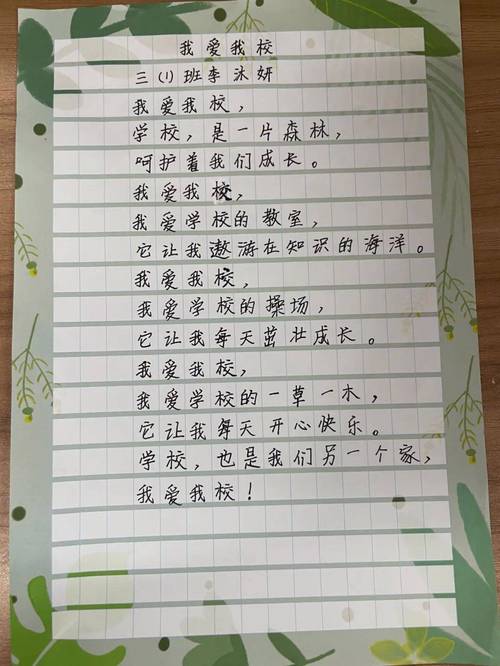 我爱我校
三(1)班李沐妍
我爱我校,
学校,是一片森林,
呵护着我们成长。
我爱我校,
我爱学校的教室,
它让我遨游在知识的海洋。
我爱我校,
我爱学校的操场,
它让我每天茁壮成长。
我爱我校,
我爱学校的一草一木,
它让我每天开心快乐。
学校,也是我们另一个家,
我爱我校!